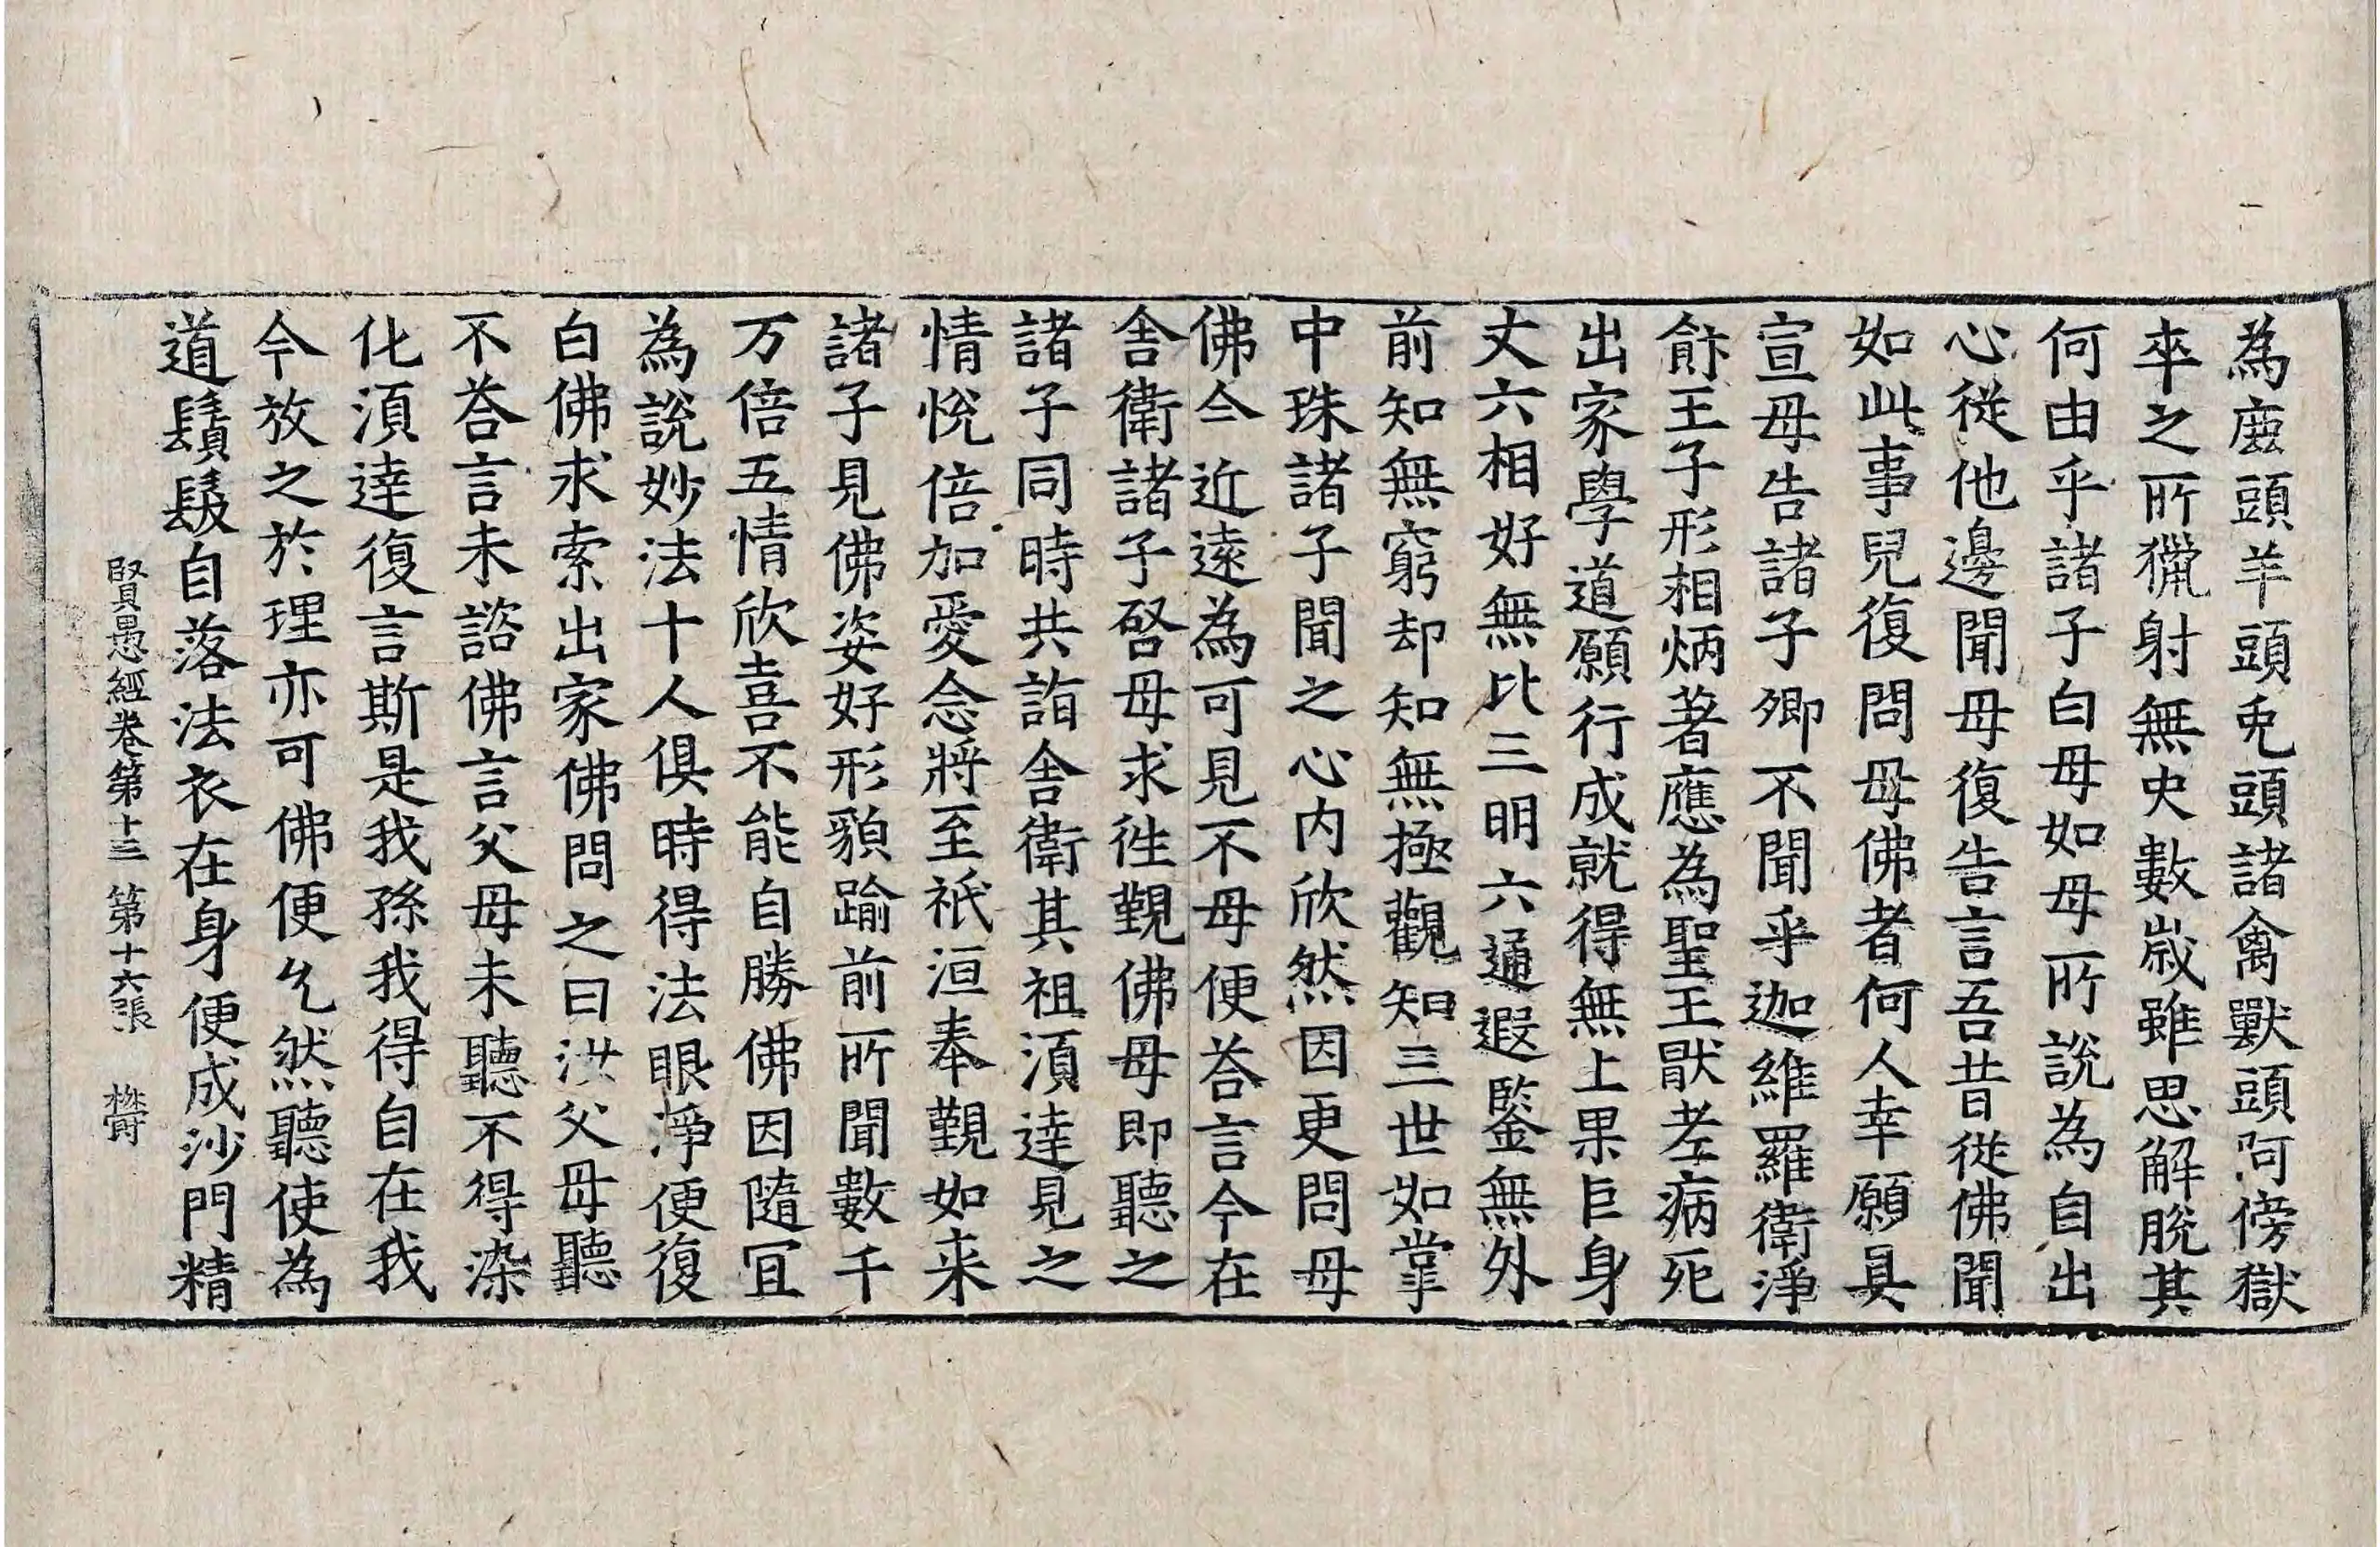 為鹿頭羊頭兎頭諸禽獸頭阿傍獄
卒之所獵射無央數歲雖思解脫其
何由乎諸子白母如母所說為自出
心從他邊聞母復告言吾昔從佛聞
如此事兒復問母佛者何人幸願具
宣母告諸子卿不聞乎迦維羅衛淨
飰王子形相炳著應為聖王猒老病死
出家學道願行成就得無上果巨身
丈六相好無比三明六通遐鑒無外
前知無窮却知無極觀知三世如掌
中珠諸子聞之心内欣然因更問母
佛今近遠為可見不母便荅言今在
舍衛諸子啓母求徃覲佛母即聽之
諸子同時共詣舍衛其祖湏達見之
情悅倍加愛念將至祇洹奉覲如来
諸子見佛姿好形貌踰前所聞數千
万倍五情欣喜不能自勝佛因隨冝
為說妙法十人俱時得法眼淨便復
白佛求索出家佛問之曰汝父母聽
不荅言未諮佛言父母未聽不得染
化湏達復言斯是我孫我得自在我
今放之於理亦可佛便允然聽使為
道鬚髮自落法衣在身便成沙門精
賢愚經卷第十三 第十六張